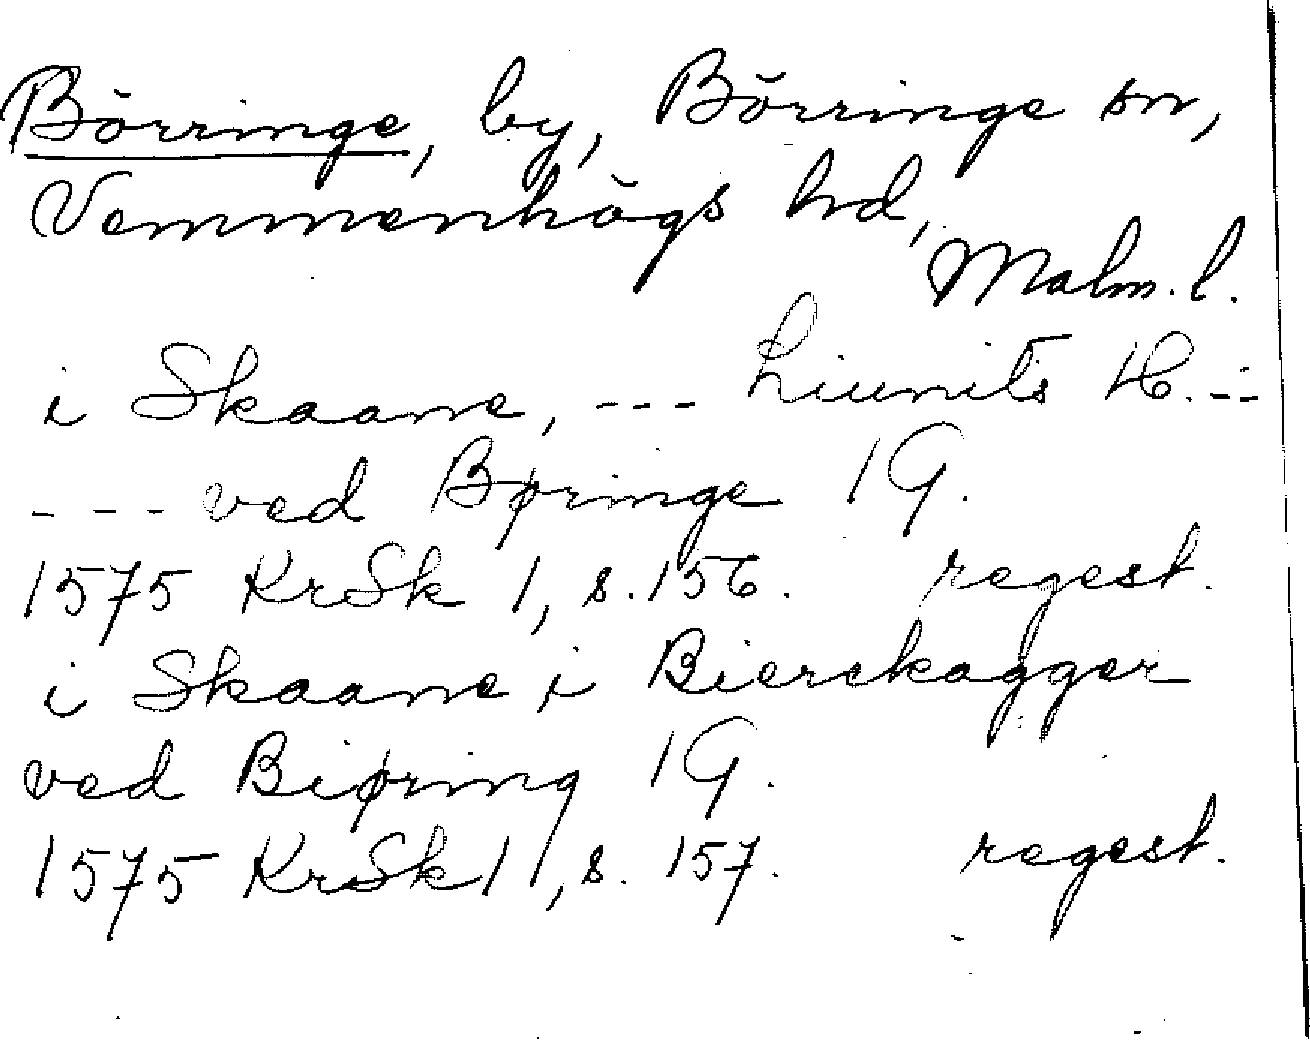 Börringe, by, Börringe sn,
Vemmenhögs hd,
Malm. l.
i Skaane, --- Liunits H. --
--- ved Børinge 1 G.
1575 KrSk 1, s. 156. regest.
i Skaane i Bierckagger
ved Biøring 1 G.
1575 KrSk 1, s. 157. regest.